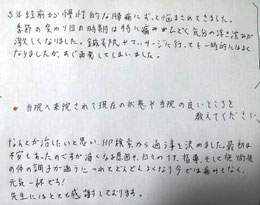 5年程前から慢性的な腰痛にずっと悩まされてきました。
季節の変わり目の時期は特に痛みがひどく気分の浮き沈みが
激しくなりました。鍼灸院やマッサージに行っても一時的には良く
なりましたが、すぐ再発してしまいました。
● 当院へ来院されて現在の状態や当院の良いところを
教えてください
なんとか治したいと思い、HP検索から通う事を決めました。最初は
不安もあったのですが痛くなる原因や、日々のケア、指導、そして施術後
の体の調子が通うにつれてどんどん良くなり今では痛みもなく、
元気一杯です!
先生にはとても感謝しております。